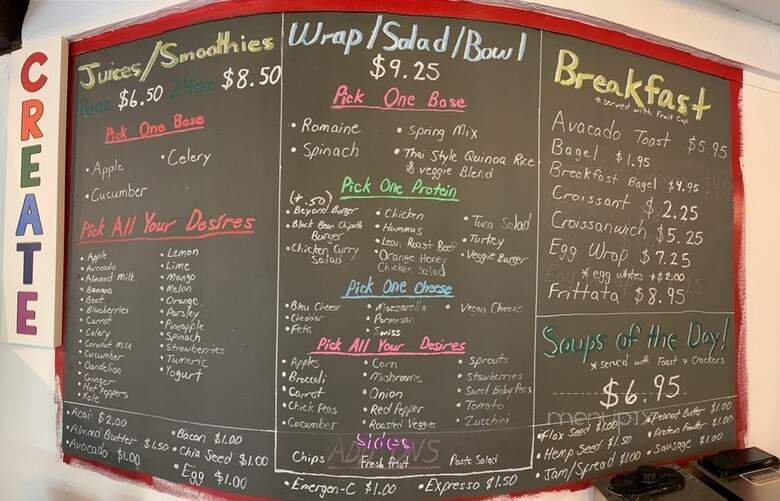 CREATE
Juices/Smoothies
16oz $6.50 24oz $8.50
Pick One Base
• Apple
• Celery
• Cucumber
Pick All Your Desires
Apple
Avocado
Almond Milk
Banana
Beet
Blueberries
Carrot
Celery
Coconut Milk
Cucumber
Dandelion
Ginger
Hot Peppers
Kale
Lemon
Lime
Mango
Melon
Orange
Parsley
Pineapple
Spinach
Strawberries
Tumeric
Yogurt
Wrap/Salad/Bowl
$9.25
Pick One Base
• Romaine
• Spinach
• Spring Mix
• Thai Style Quinoa Rice
& veggie Blend
Pick One Protein
(+.50)
• Beyond Burger
• Black Bean Chipotle
Burger
• Chicken Curry
Salad
• Chicken
• Hummus
• Lean Roast Beef
• Orange Honey
Chicken Salad
• Tuna Salad
• Turkey
• Veggie Burger
Pick One Cheese
• Bleu Cheese
• Cheddar
• Feta
• Mozzarella
• Parmesan
• Swiss
• Vegan Cheese
Pick All Your Desires
• Apples
• Broccoli
• Carrot
• Chick Peas
• Cucumber
• Corn
• Mushrooms
• Onion
• Red Pepper
• Roasted Veggies
• Sprouts
• Strawberries
• Sweet Baby Peas
• Tomato
• Zucchini
Sides
Chips
Fresh fruit
Pasta Salad
ADD ONS
Breakfast
* served with Fruit Cup
Avacado Toast $5.95
Bagel $1.95
Breakfast Bagel $4.95
Croissant $2.25
Croissanwich $5.25
Egg Wrap $7.25
* egg whites +$2.00
Frittata $8.95
Soups of the Day!
* served with Toast & Crackers
$6.95
menupix
• Acai $2.00
• Almond Butter $1.50
• Avocado $1.00
• Bacon $1.00
• Chia Seed $1.00
• Egg $1.00
• Emergen-C $1.00
• Expresso $1.50
• Flax Seed $1.00
• Hemp Seed $1.50
• Jam/Spread $1.00
• Peanut Butter $1.00
• Protein Powder $1.00
• Sausage $1.00